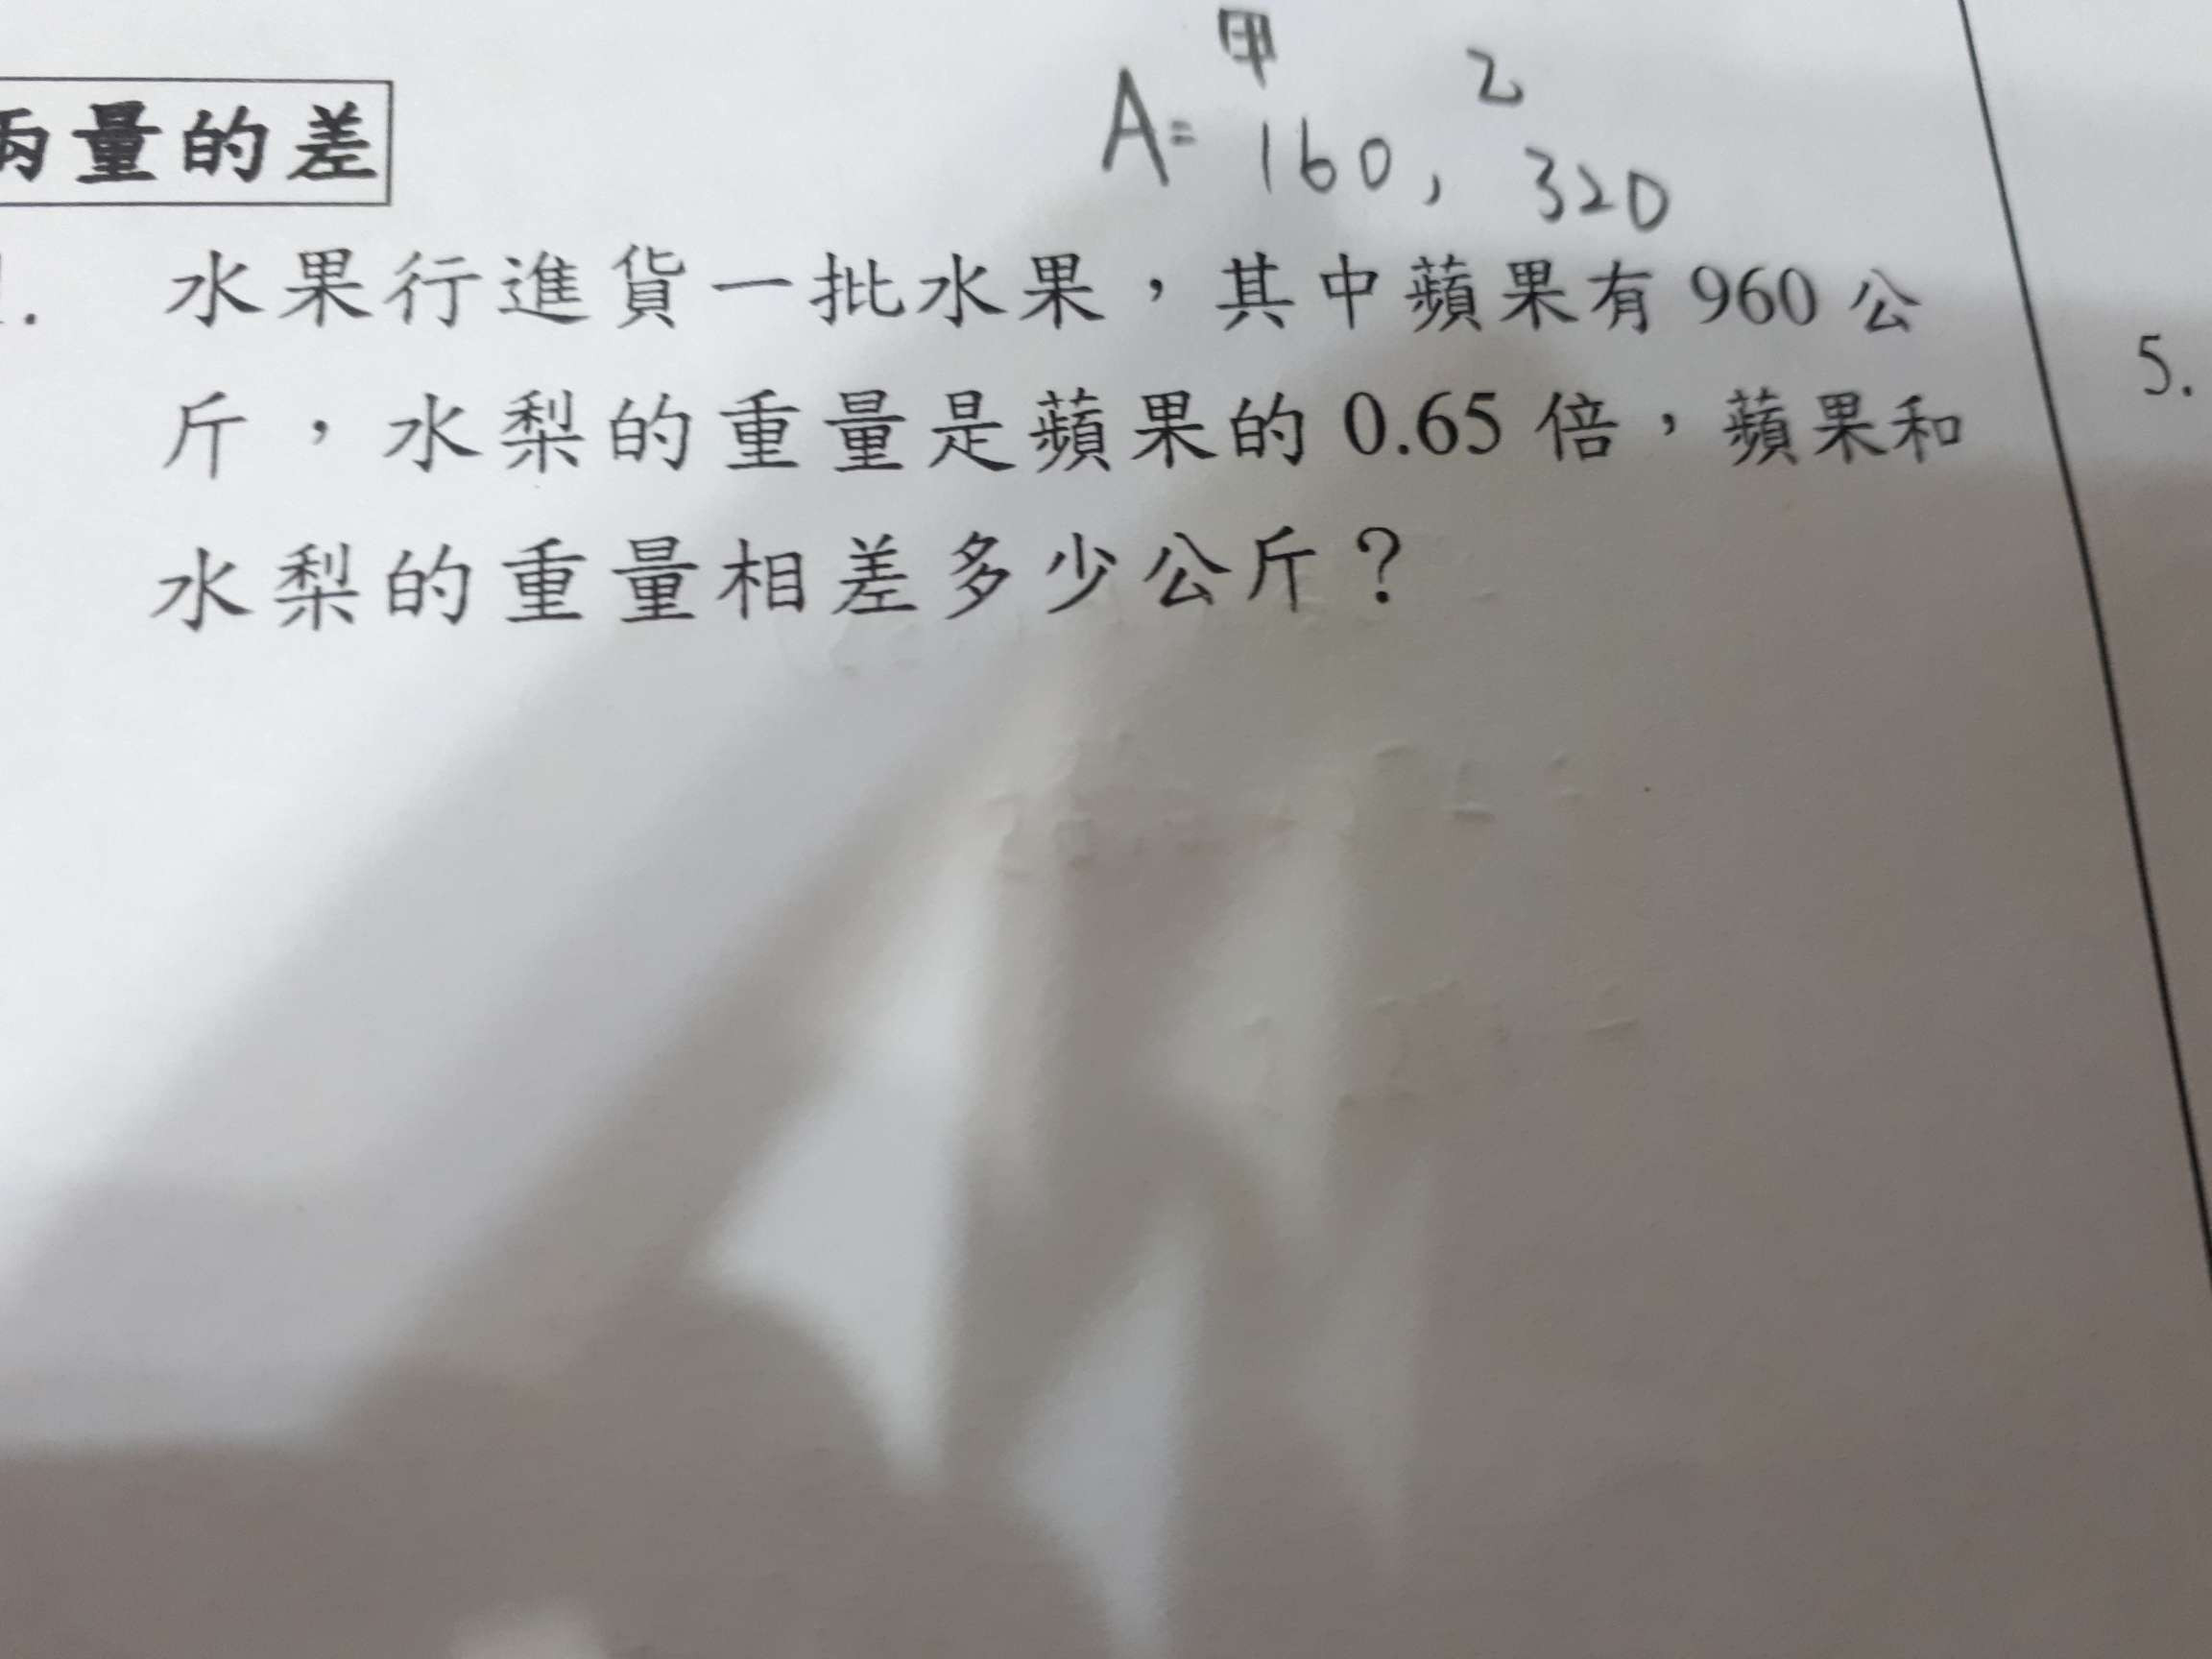 甲 乙
A= 160, 320
兩量的差
1. 水果行進貨一批水果，其中蘋果有 960 公
斤，水梨的重量是蘋果的 0.65 倍，蘋果和
水梨的重量相差多少公斤？
5.